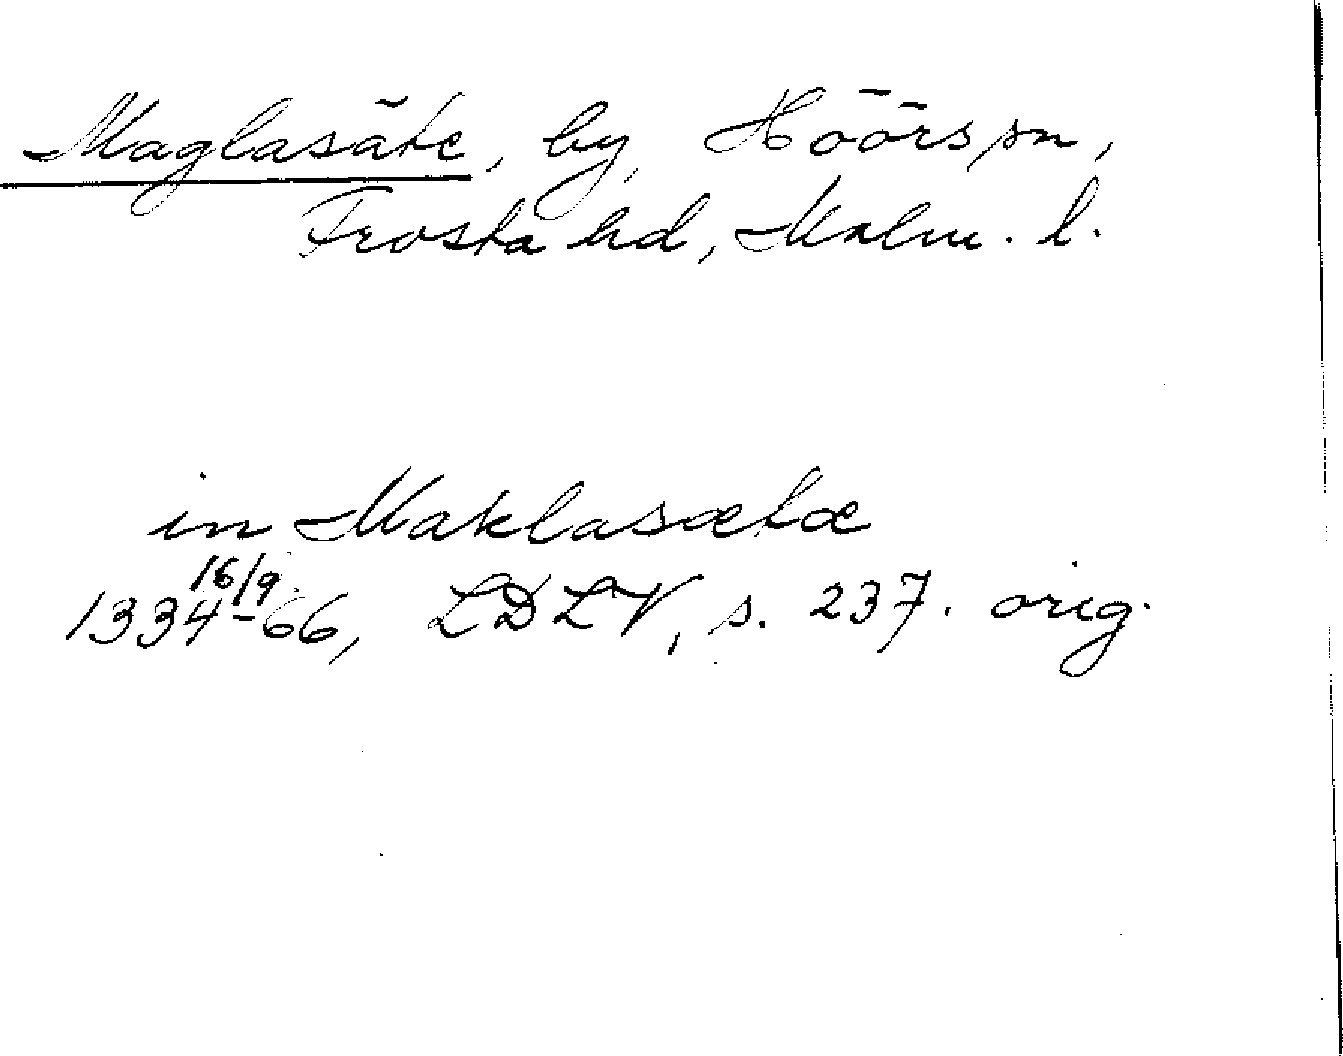 Maglasäte, by, Höörs sn,
Frosta hd, Malm. l.
in Maklasætæ
16/9
1334-66, LDLV, s. 237. orig.